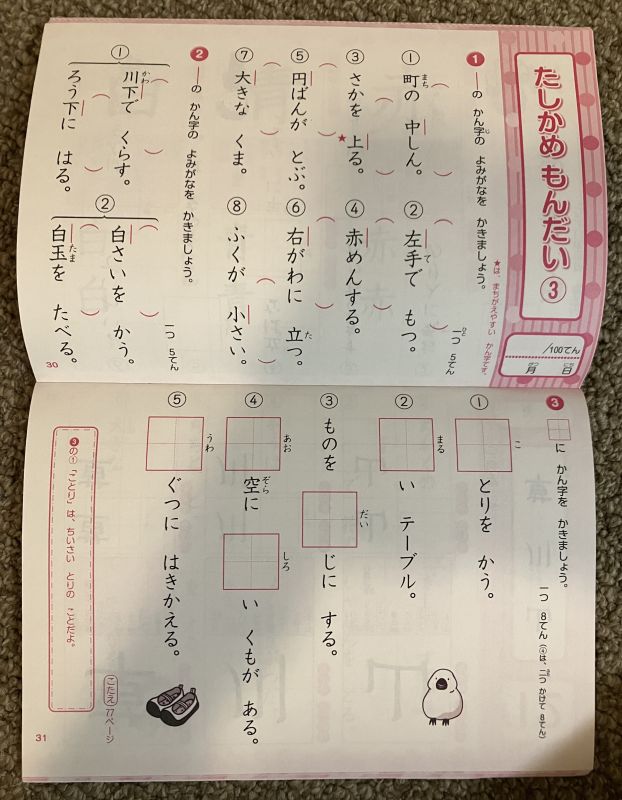 たしかめ もんだい ③
/100てん
月 日
がつ にち
★は、まちがえやすい かん字です。
1 ―の かん字の よみがなを かきましょう。
一つ 5てん
① 町の 中しん。
② 左手で もつ。
③ さかを 上る。★
④ 赤めんする。
⑤ 円ばんが とぶ。
⑥ 右がわに 立つ。
⑦ 大きな くま。
⑧ ふくが 小さい。
2 ―の かん字の よみがなを かきましょう。
一つ 5てん
① 川下で くらす。
ろう下に はる。
② 白さいを かう。
白玉を たべる。
30
3 □に かん字を かきましょう。
一つ 8てん(④は、二つ かけて 8てん)
① こ とりを かう。
② まる い テーブル。
③ ものを だい じに する。
④ あお 空に しろ い くもが ある。
⑤ うわ ぐつに はきかえる。
③の①「ことり」は、ちいさい とりの ことだよ。
こたえ 77ページ
31